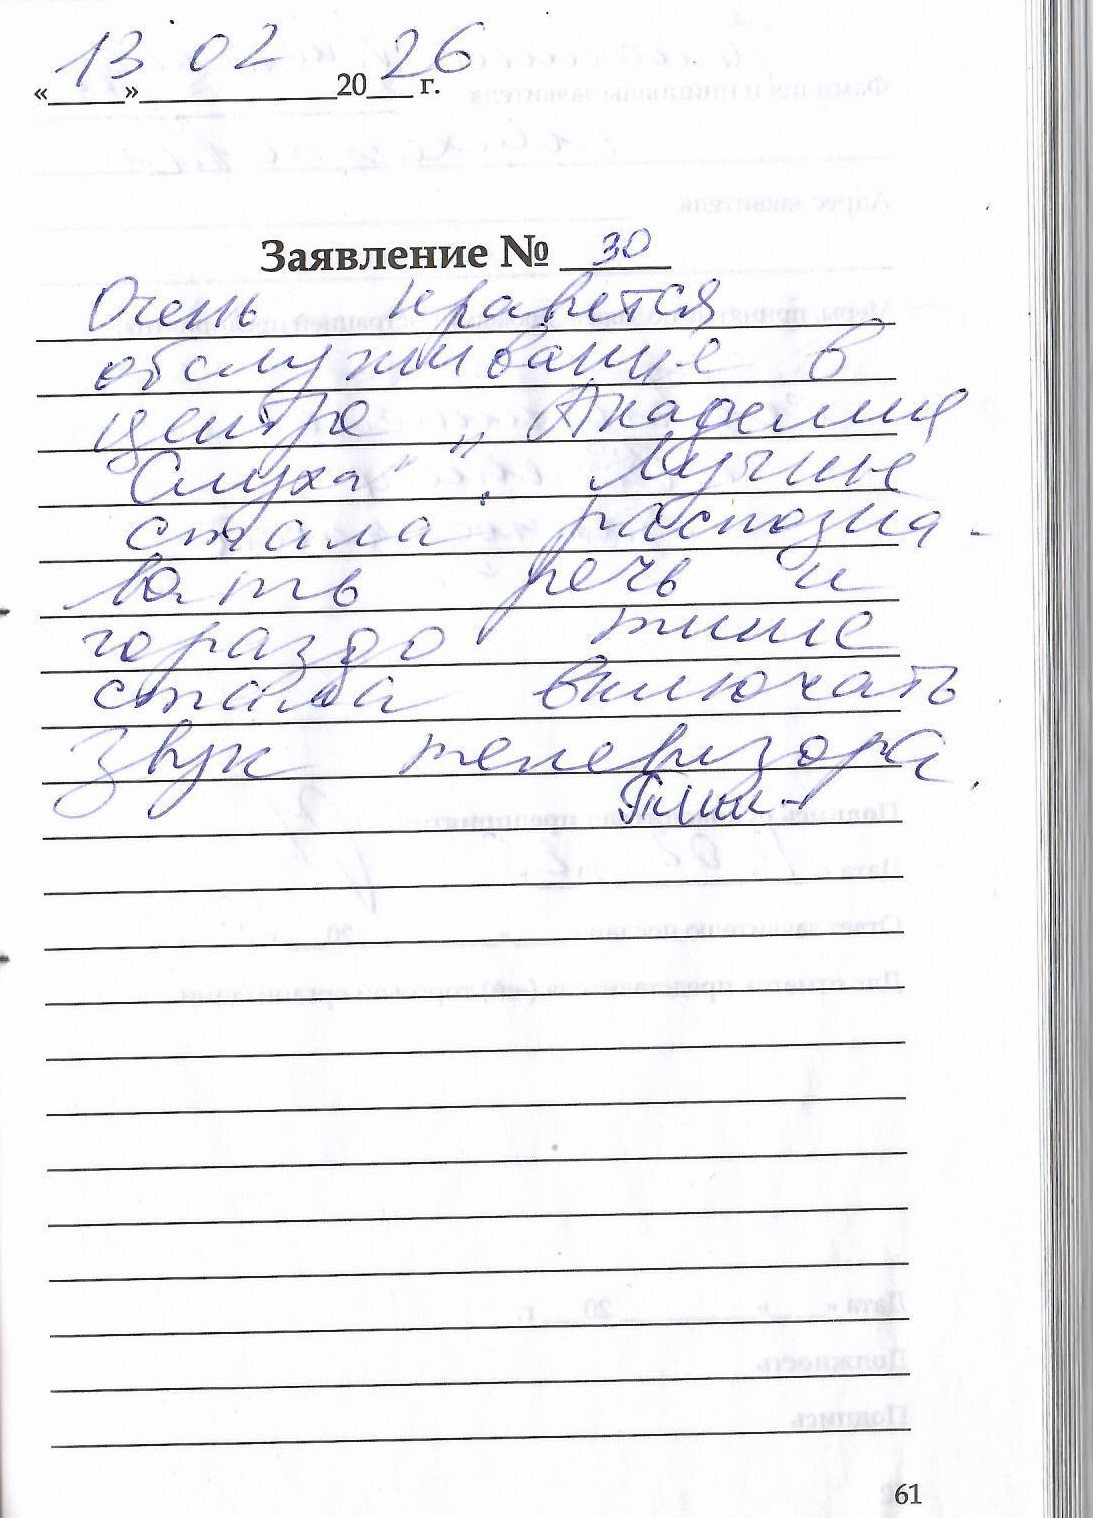 «13» 02 2026 г.
Заявление № 30
Очень нравится
обслуживание в
центре „Академия
Слуха". Лучше
стала распозна-
вать речь и
гораздо тише
стала включать
звук телевизора.
61